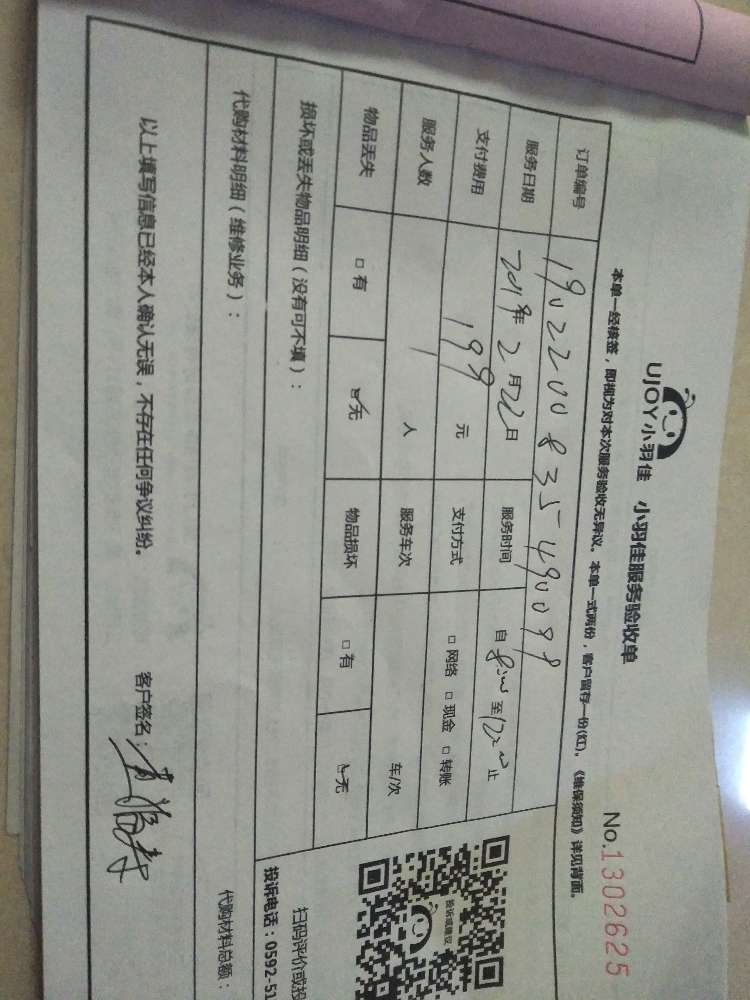 UJOY小羽佳 小羽佳服务验收单
No.1302625
本单一经核签，即视为对本次服务验收无异议。本单一式两份，客户留存一份(红)。《维保须知》详见背面。
订单编号 1902200835490098
服务日期 2019年2月22日 服务时间 自8:00至12:00止
支付费用 199元 支付方式 □网络 □现金 □转账
服务人数 1人 服务车次 车/次
物品丢失 □有 □无 物品损坏 □有 □无
损坏或丢失物品明细（没有可不填）：
代购材料明细（维修业务）： 代购材料总额：
以上填写信息已经本人确认无误，不存在任何争议纠纷。 客户签名：
投诉或建议
扫码评价或投
投诉电话：0592-51